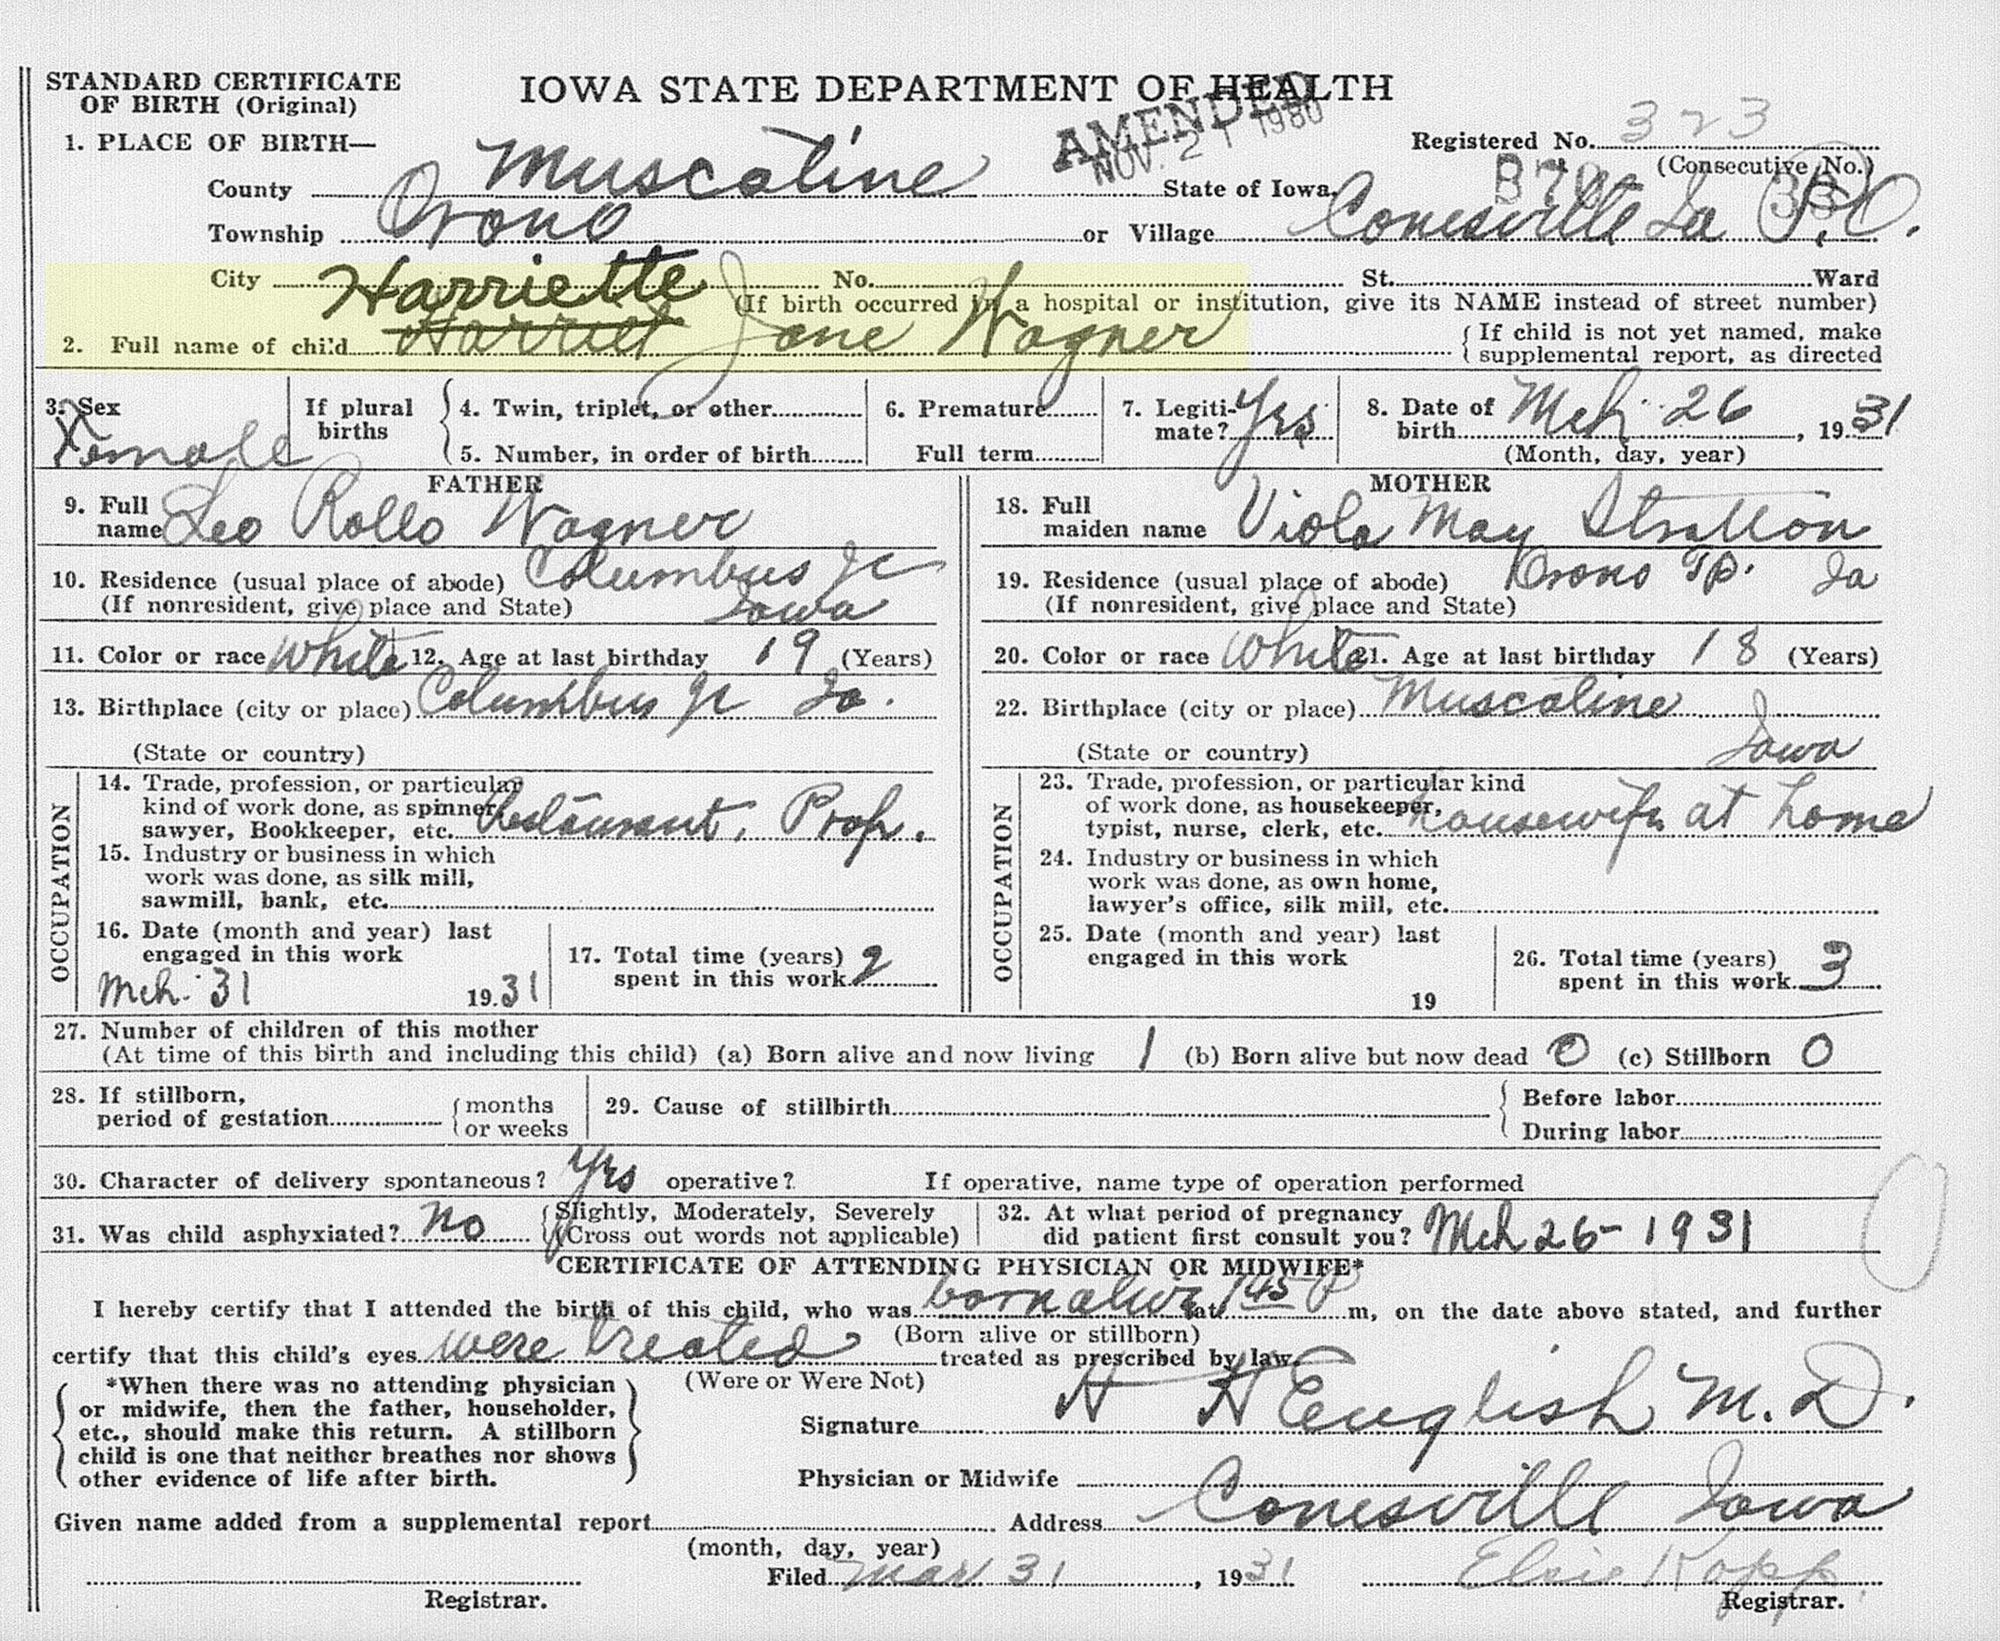 STANDARD CERTIFICATE OF BIRTH (Original)
IOWA STATE DEPARTMENT OF HEALTH
AMENDED
NOV. 21 1980
Registered No. 323
(Consecutive No.)
1. PLACE OF BIRTH—
County Muscatine State of Iowa.
Township Orono or Village Conesville Ia P.O.
City No. St. Ward
Harriette
(If birth occurred in a hospital or institution, give its NAME instead of street number)
2. Full name of child Harriet Jane Wagner
{If child is not yet named, make supplemental report, as directed
3. Sex Female
If plural births
4. Twin, triplet, or other
5. Number, in order of birth
6. Premature
Full term
7. Legitimate? Yes
8. Date of birth Mch. 26, 1931
(Month, day, year)
FATHER
9. Full name Leo Rollo Wagner
10. Residence (usual place of abode) Columbus Jc
(If nonresident, give place and State) Iowa
11. Color or race White 12. Age at last birthday 19 (Years)
13. Birthplace (city or place) Columbus Jc Ia.
(State or country)
OCCUPATION
14. Trade, profession, or particular kind of work done, as spinner, sawyer, Bookkeeper, etc. Restaurant, Prop.
15. Industry or business in which work was done, as silk mill, sawmill, bank, etc.
16. Date (month and year) last engaged in this work
Mch. 31 1931
17. Total time (years) spent in this work 2
MOTHER
18. Full maiden name Viola May Stratton
19. Residence (usual place of abode) Orono Tp. Ia
(If nonresident, give place and State)
20. Color or race White 21. Age at last birthday 18 (Years)
22. Birthplace (city or place) Muscatine
(State or country) Iowa
OCCUPATION
23. Trade, profession, or particular kind of work done, as housekeeper, typist, nurse, clerk, etc. housewife at home
24. Industry or business in which work was done, as own home, lawyer's office, silk mill, etc.
25. Date (month and year) last engaged in this work
19
26. Total time (years) spent in this work 3
27. Number of children of this mother
(At time of this birth and including this child) (a) Born alive and now living 1 (b) Born alive but now dead 0 (c) Stillborn 0
28. If stillborn, period of gestation {months or weeks
29. Cause of stillbirth { Before labor
During labor
30. Character of delivery spontaneous? Yes operative? If operative, name type of operation performed
31. Was child asphyxiated? No {Slightly, Moderately, Severely (Cross out words not applicable)
32. At what period of pregnancy did patient first consult you? Mch 26 - 1931
CERTIFICATE OF ATTENDING PHYSICIAN OR MIDWIFE*
I hereby certify that I attended the birth of this child, who was born alive at 145 P m, on the date above stated, and further
(Born alive or stillborn)
certify that this child's eyes were treated treated as prescribed by law.
(Were or Were Not)
*When there was no attending physician or midwife, then the father, householder, etc., should make this return. A stillborn child is one that neither breathes nor shows other evidence of life after birth.
Signature H H English M.D.
Physician or Midwife
Given name added from a supplemental report
(month, day, year)
Address Conesville Iowa
Filed Mar 31, 1931 Elsie Kopp
Registrar. Registrar.